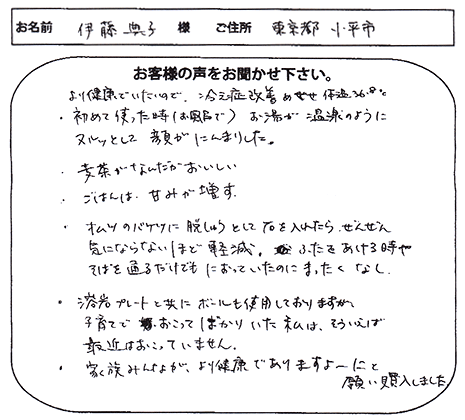 お名前 伊藤典子 様 ご住所 東京都 小平市
お客様の声をお聞かせ下さい。
より健康でいたいので、冷え症改善めざせ 体温36.8℃
・初めて使った時(お風呂で) お湯が温泉のように
ヌルッとして 顔がにんまりした。
・麦茶がなんだかおいしい
・ごはんは、甘みが増す。
・オムツのバケツに脱しゅうとして石を入れたら、ぜんぜん
気にならないほど軽減。ふたをあける時や
そばを通るだけでもにおっていたのにまったくなし。
・溶岩プレートと共にボールも使用しておりますが、
子育てでおこってばかりいた私は、そういえば
最近はおこっていません。
・家族みんなが、より健康でありますよーにと
願い購入しました